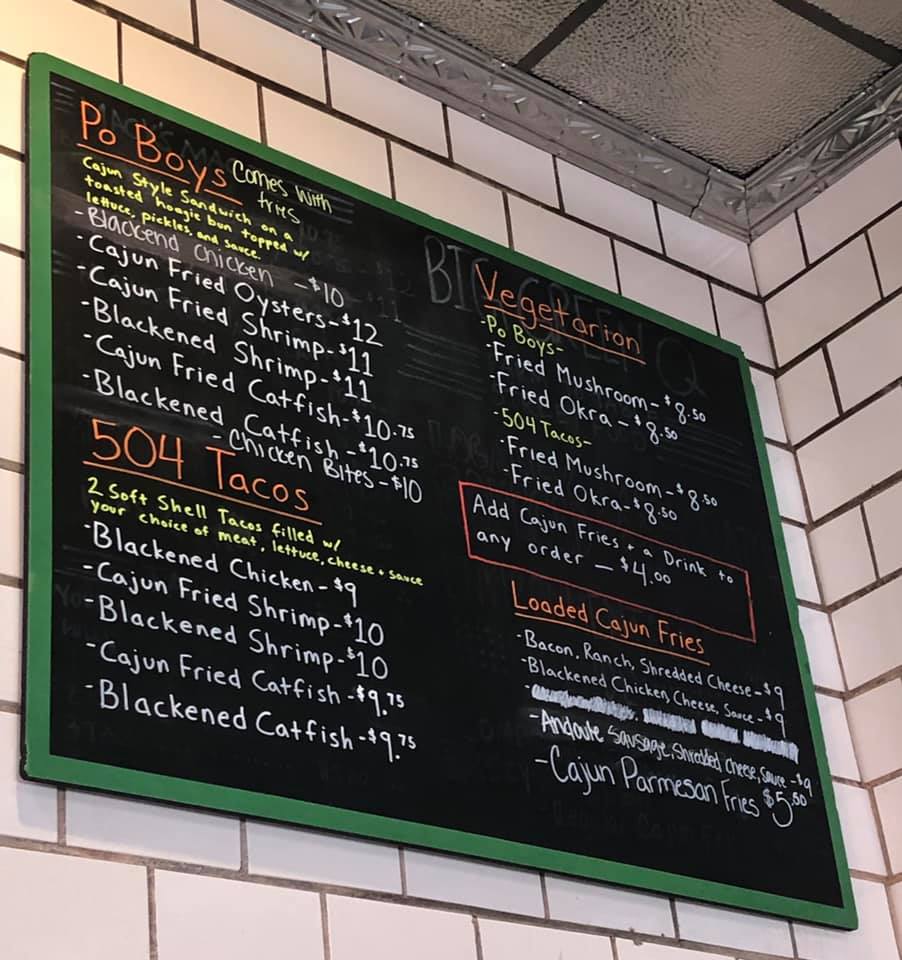 Po Boys
Comes with
fries
Cajun Style Sandwich on a
toasted hoagie bun topped w/
lettuce, pickles, and sauce.
-Blackend chicken -$10
-Cajun Fried Oysters-$12
-Cajun Fried Shrimp-$11
-Blackened Shrimp-$11
-Cajun Fried Catfish-$10.75
-Blackened Catfish-$10.75
-Chicken Bites-$10
504 Tacos
2 Soft Shell Tacos filled w/
your choice of meat, lettuce, cheese + sauce
-Blackened Chicken-$9
-Cajun Fried Shrimp-$10
-Blackened Shrimp-$10
-Cajun Fried Catfish-$9.75
-Blackened Catfish-$9.75
Vegetarian
-Po Boys-
-Fried Mushroom-$8.50
-Fried Okra-$8.50
-504 Tacos-
-Fried Mushroom-$8.50
-Fried Okra-$8.50
Add Cajun Fries + a Drink to
any order — $4.00
Loaded Cajun Fries
-Bacon, Ranch, Shredded Cheese-$9
-Blackened Chicken, Cheese, Sauce-$9
-Andouie Sausage, Shredded Cheese, Sauce-$9
-Cajun Parmesan Fries $5.50